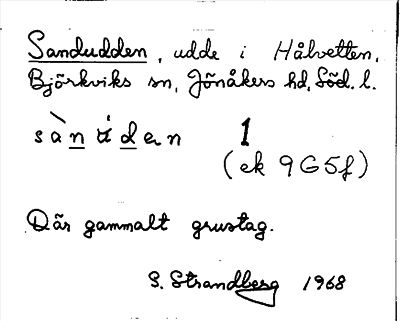 Sandudden, udde i Hålvetten,
Björkviks sn, Jönåkers hd, Söd. l.
sàn ud en 1
(ek 9G5f)
Där gammalt grustag.
S. Strandberg 1968